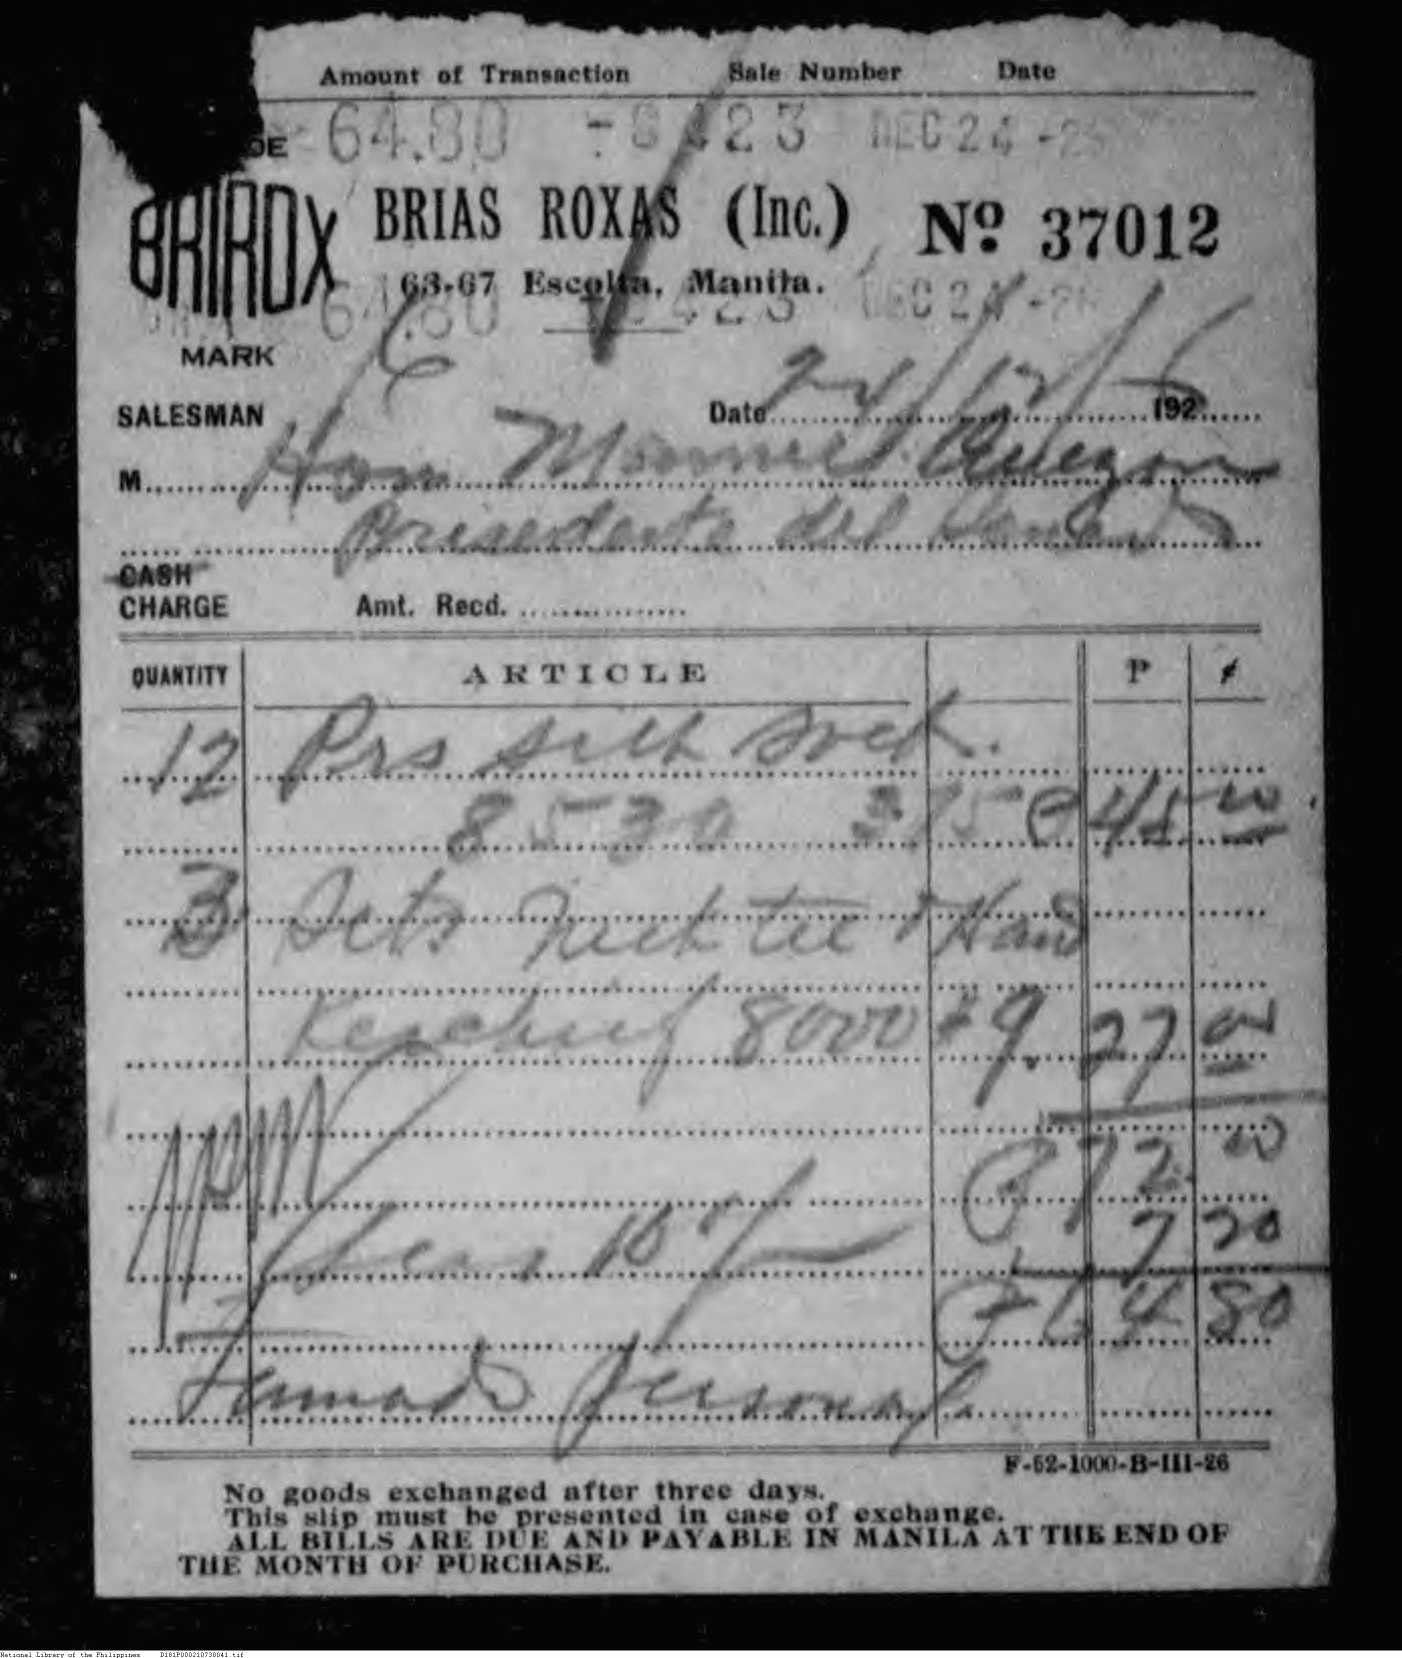 Amount of Transaction Sale Number Date
DE 64.80 423 DEC 24 -26
BRIROX BRIAS ROXAS (Inc.) Nº 37012
63-67 Escolta, Manila.
64.80 423 DEC 24 -26
MARK
SALESMAN Date 24/12/ 192
M Hon Manuel Quezon
Presidente del Senado
CASH
CHARGE Amt. Recd.
QUANTITY ARTICLE P ¢
12 Prs silk sock.
8530 375 @ 45 00
3 Sets Neck tie + Hand
Kerchief 8000 9. 27 00
₱ 72 00
Less 10% 7 20
₱ 64 80
Firmado Personal
F-62-1000-B-III-26
No goods exchanged after three days.
This slip must be presented in case of exchange.
ALL BILLS ARE DUE AND PAYABLE IN MANILA AT THE END OF
THE MONTH OF PURCHASE.
National Library of the Philippines D181P000210738041.tif